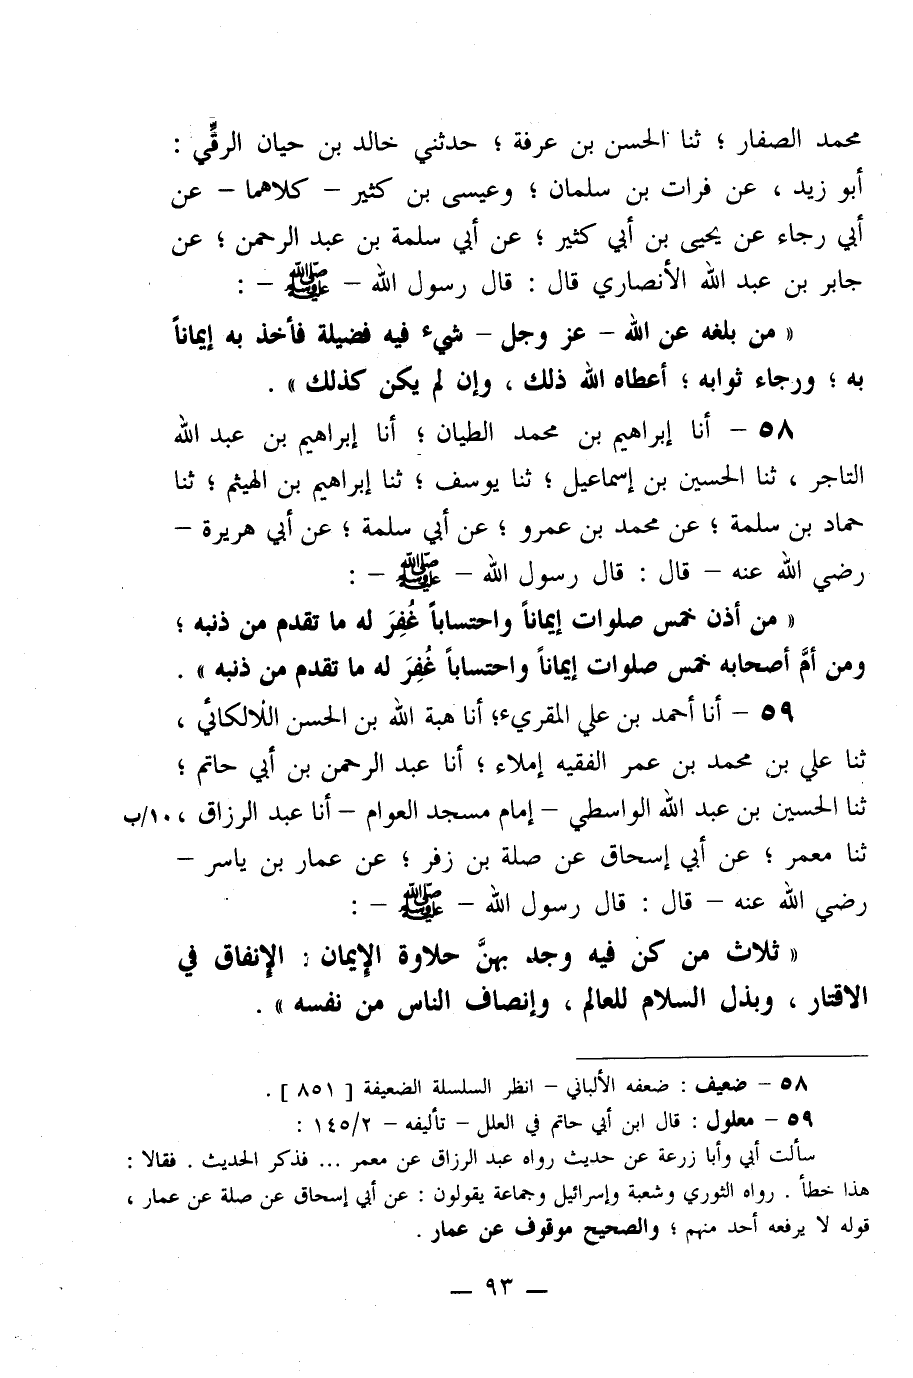 محمد الصفار ؛ ثنا الحسن بن عرفة ؛ حدثني خالد بن حيان الرقِّي :
أبو زيد ، عن فرات بن سلمان ؛ وعيسى بن كثير – كلاهما – عن
أبي رجاء عن يحيى بن أبي كثير ؛ عن أبي سلمة بن عبد الرحمن ؛ عن
جابر بن عبد الله الأنصاري قال : قال رسول الله – ﷺ – :
« من بلغه عن الله – عز وجل – شيء فيه فضيلة فأخذ به إيماناً
به ؛ ورجاء ثوابه ؛ أعطاه الله ذلك ، وإن لم يكن كذلك » .
٥٨ – أنا إبراهيم بن محمد الطيان ؛ أنا إبراهيم بن عبد الله
التاجر ، ثنا الحسين بن إسماعيل ؛ ثنا يوسف ؛ ثنا إبراهيم بن الهيثم ؛ ثنا
حماد بن سلمة ؛ عن محمد بن عمرو ؛ عن أبي سلمة ؛ عن أبي هريرة –
رضي الله عنه – قال : قال رسول الله – ﷺ – :
« من أذن خمس صلوات إيماناً واحتساباً غُفِرَ له ما تقدم من ذنبه ؛
ومن أمَّ أصحابه خمس صلوات إيماناً واحتساباً غُفِرَ له ما تقدم من ذنبه » .
٥٩ – أنا أحمد بن علي المقريء؛ أنا هبة الله بن الحسن اللالكائي ،
ثنا علي بن محمد بن عمر الفقيه إملاء ؛ أنا عبد الرحمن بن أبي حاتم ؛
ثنا الحسين بن عبد الله الواسطي – إمام مسجد العوام – أنا عبد الرزاق ، ١٠/ب
ثنا معمر ؛ عن أبي إسحاق عن صلة بن زفر ؛ عن عمار بن ياسر –
رضي الله عنه – قال : قال رسول الله – ﷺ – :
« ثلاث من كن فيه وجد بهنَّ حلاوة الإيمان : الإنفاق في
الاقتار ، وبذل السلام للعالم ، وإنصاف الناس من نفسه » .
٥٨ – ضعيف : ضعفه الألباني – انظر السلسلة الضعيفة [ ٨٥١ ] .
٥٩ – معلول : قال ابن أبي حاتم في العلل – تأليفه – ١٤٥/٢ :
سألت أبي وأبا زرعة عن حديث رواه عبد الرزاق عن معمر ... فذكر الحديث . فقالا :
هذا خطأ . رواه الثوري وشعبة وإسرائيل وجماعة يقولون : عن أبي إسحاق عن صلة عن عمار ،
قوله لا يرفعه أحد منهم ؛ والصحيح موقوف عن عمار .
— ٩٣ —